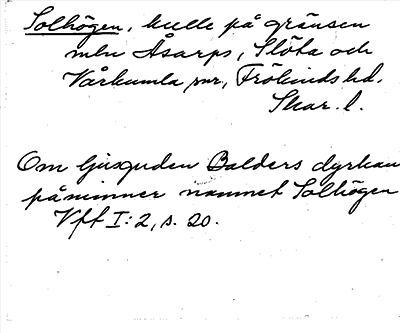 Solhögen, kulle på gränsen
mln Åsarps, Slöta och
Vårkumla snr, Frökinds hd.
Skar. l.
Om ljusguden Balders dyrkan
påminner namnet Solhögen
Vft I:2, s. 20.